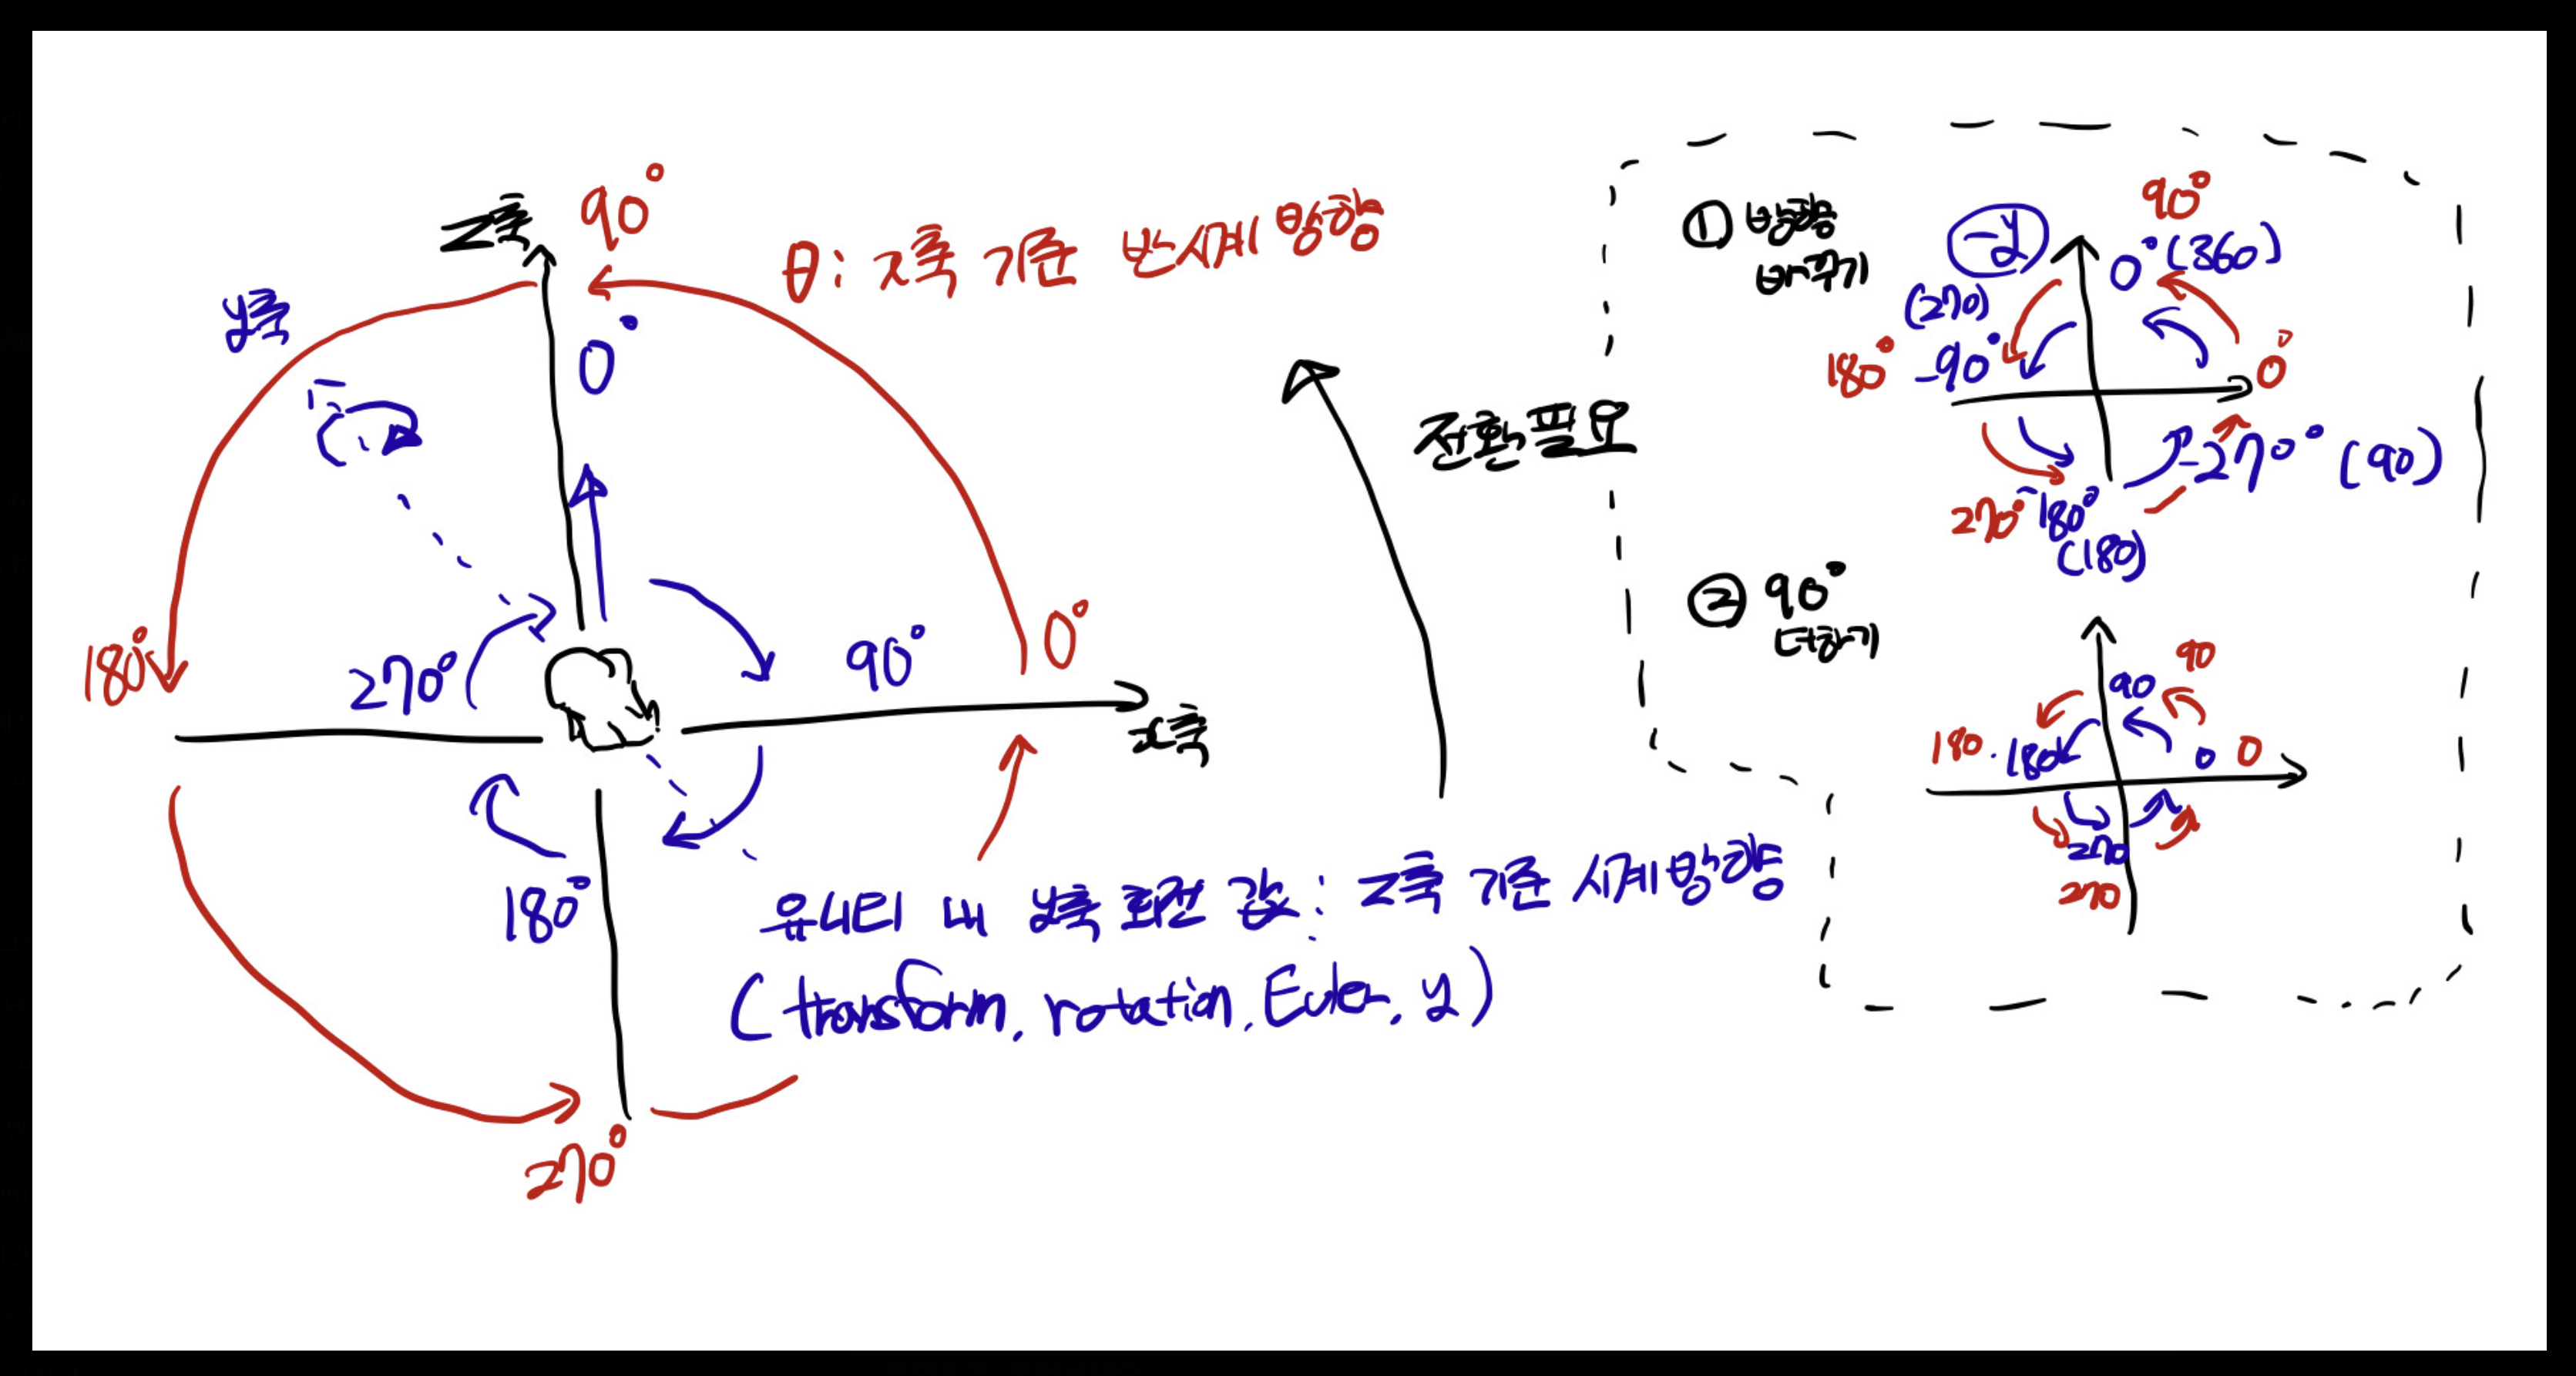 z축
90°
θ: x축 기준 반시계 방향
y축
0°
180°
270°
90°
0°
x축
180°
270°
유니티 내 y축 회전 값: z축 기준 시계방향
(transform.rotation.Euler.y)
전환필요
① 방향
바꾸기
-y
90°
0°(360)
(270)
180°
-90°
0°
-270° (90)
270°
-180°
(180)
② 90°
더하기
90
90
180
180
0
0
270
270